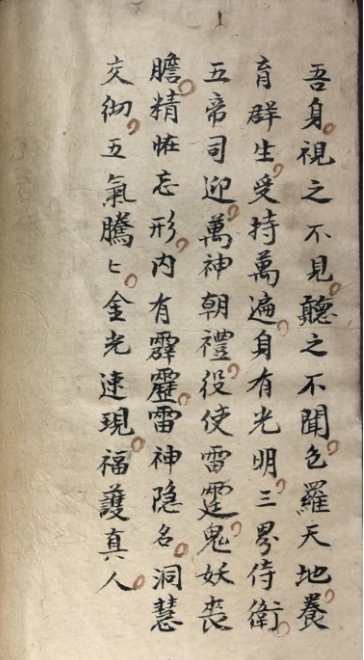 吾身。視之不見。聽之不聞。包羅天地。養
育群生。受持萬遍。身有光明。三界侍衛。
五帝司迎。萬神朝禮。役使雷霆。鬼妖喪
膽。精怪忘形。内有霹靂。雷神隐名。洞慧
交彻。五氣騰〻。金光速現。福護真人。